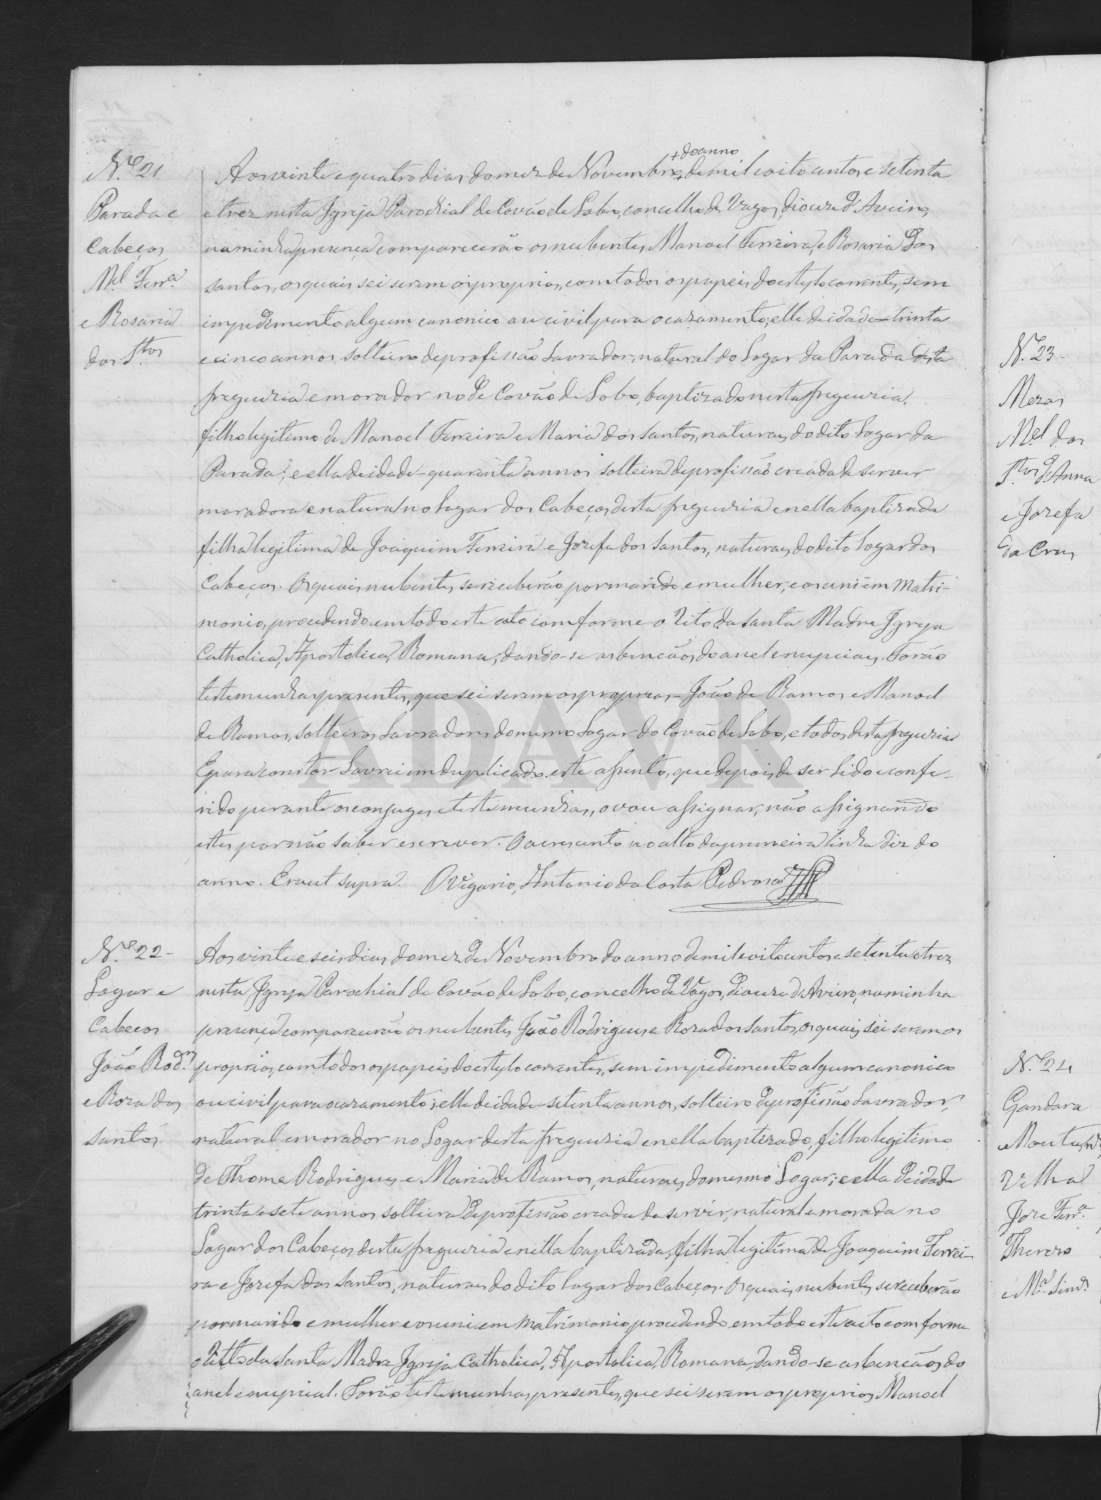 N.º 21
Parada e
Cabeços
M.el Ferr.a
e Rosaria
dos S.tos
+ do anno
Aos vinte e quatro dias do mez de Novembro + de mil oito centos e setenta
e trez nesta Igreja Parochial de Covão de Lobo, concelho de Vagos, diocese d'Aveiro,
na minha presença comparecerão os nubentes, Manoel Ferreira, e Rosaria dos
santos, os quais sei serem os proprios, com todos os papeis do estylo correntes, sem
impedimento algum canonico ou civil para o cazamento; elle de idade trinta
e cinco annos solteiro de profissão Lavrador, natural do Logar da Parada desta
freguezia e morador no de Covão de Lobo, baptizado nesta freguezia,
filho legitimo de Manoel Ferreira e Maria dos Santos, naturaes do dito Logar da
Parada; e ella de idade quarenta annos solteira de profissão creada de servir
moradora e natural no Logar dos Cabeços, desta freguezia e nella baptizada
filha legitima de Joaquim Ferreira e Jozefa dos Santos, naturaes do dito Logar dos
Cabeços. Os quais nubentes se receberão por marido e mulher, e os uni em Matri-
monio, procedendo em todo este acto comforme o Rito da Santa Madre Igreja
Catholica, Apostolica, Romana, dando-se as bencãos do anel e nupciaes. Forão
testemunhas presentes, que sei serem os proprios - João de Ramos e Manoel
de Ramos, solteiros, Lavradores do mesmo Logar do Covão de Lobo, e todos desta freguezia
E para constar Lavrei em duplicado este assento, que depois de ser Lido e confe-
rido perante os conjuges, e testemunhas, o vou assignar, não assignando
estes por não saber escrever. O acrescento no alto da primeira linha diz do
anno. Era ut supra. O Vigario, Antonio da Costa Pedroza
N.º 22
Logar e
Cabeços
João Rod.es
e Roza dos
santos
Aos vinte e seis dias do mez de Novembro do anno de mil oito centos e setenta e trez
nesta Igreja Parochial de Covão de Lobo, concelho de Vagos, diocese d'Aveiro, na minha
presença comparecerão os nubentes, João Rodrigues, e Roza dos Santos, os quais, sei serem os
proprios, com todos os papeis do estylo correntes, sem impedimento algum canonico
ou civil para o cazamento; elle de idade setenta annos, solteiro de profissão Lavrador,
natural e morador no Logar desta freguezia e nella baptizado, filho legitimo
de Thome Rodrigues e Maria de Ramos, naturaes do mesmo Logar; e ella de idade
trinta e sete annos solteira de profissão creada de servir, natural e morada no
Logar dos Cabeços desta freguezia e nella baptizada, filha legitima de Joaquim Ferrei-
ra e Jozefa dos Santos, naturaes do dito logar dos Cabeços. Os quais nubentes se receberão
por marido e mulher e os uni em Matrimonio procedendo em todo este acto comforme
o Ritto da Santa Madre Igreja Catholica, Apostolica, Romana, dando-se as bencãos do
anel e nupcial. Forão testemunhas presentes, que sei serem os proprios, Manoel
N.º 23
Mezas
M.el dos
S.tos d'Anna
e Jozefa
da Cruz
N.º 24
Gandara
e Monte
Velha
Joze Ferr.a
Thereso
e M.a Sim.s
ADAVR